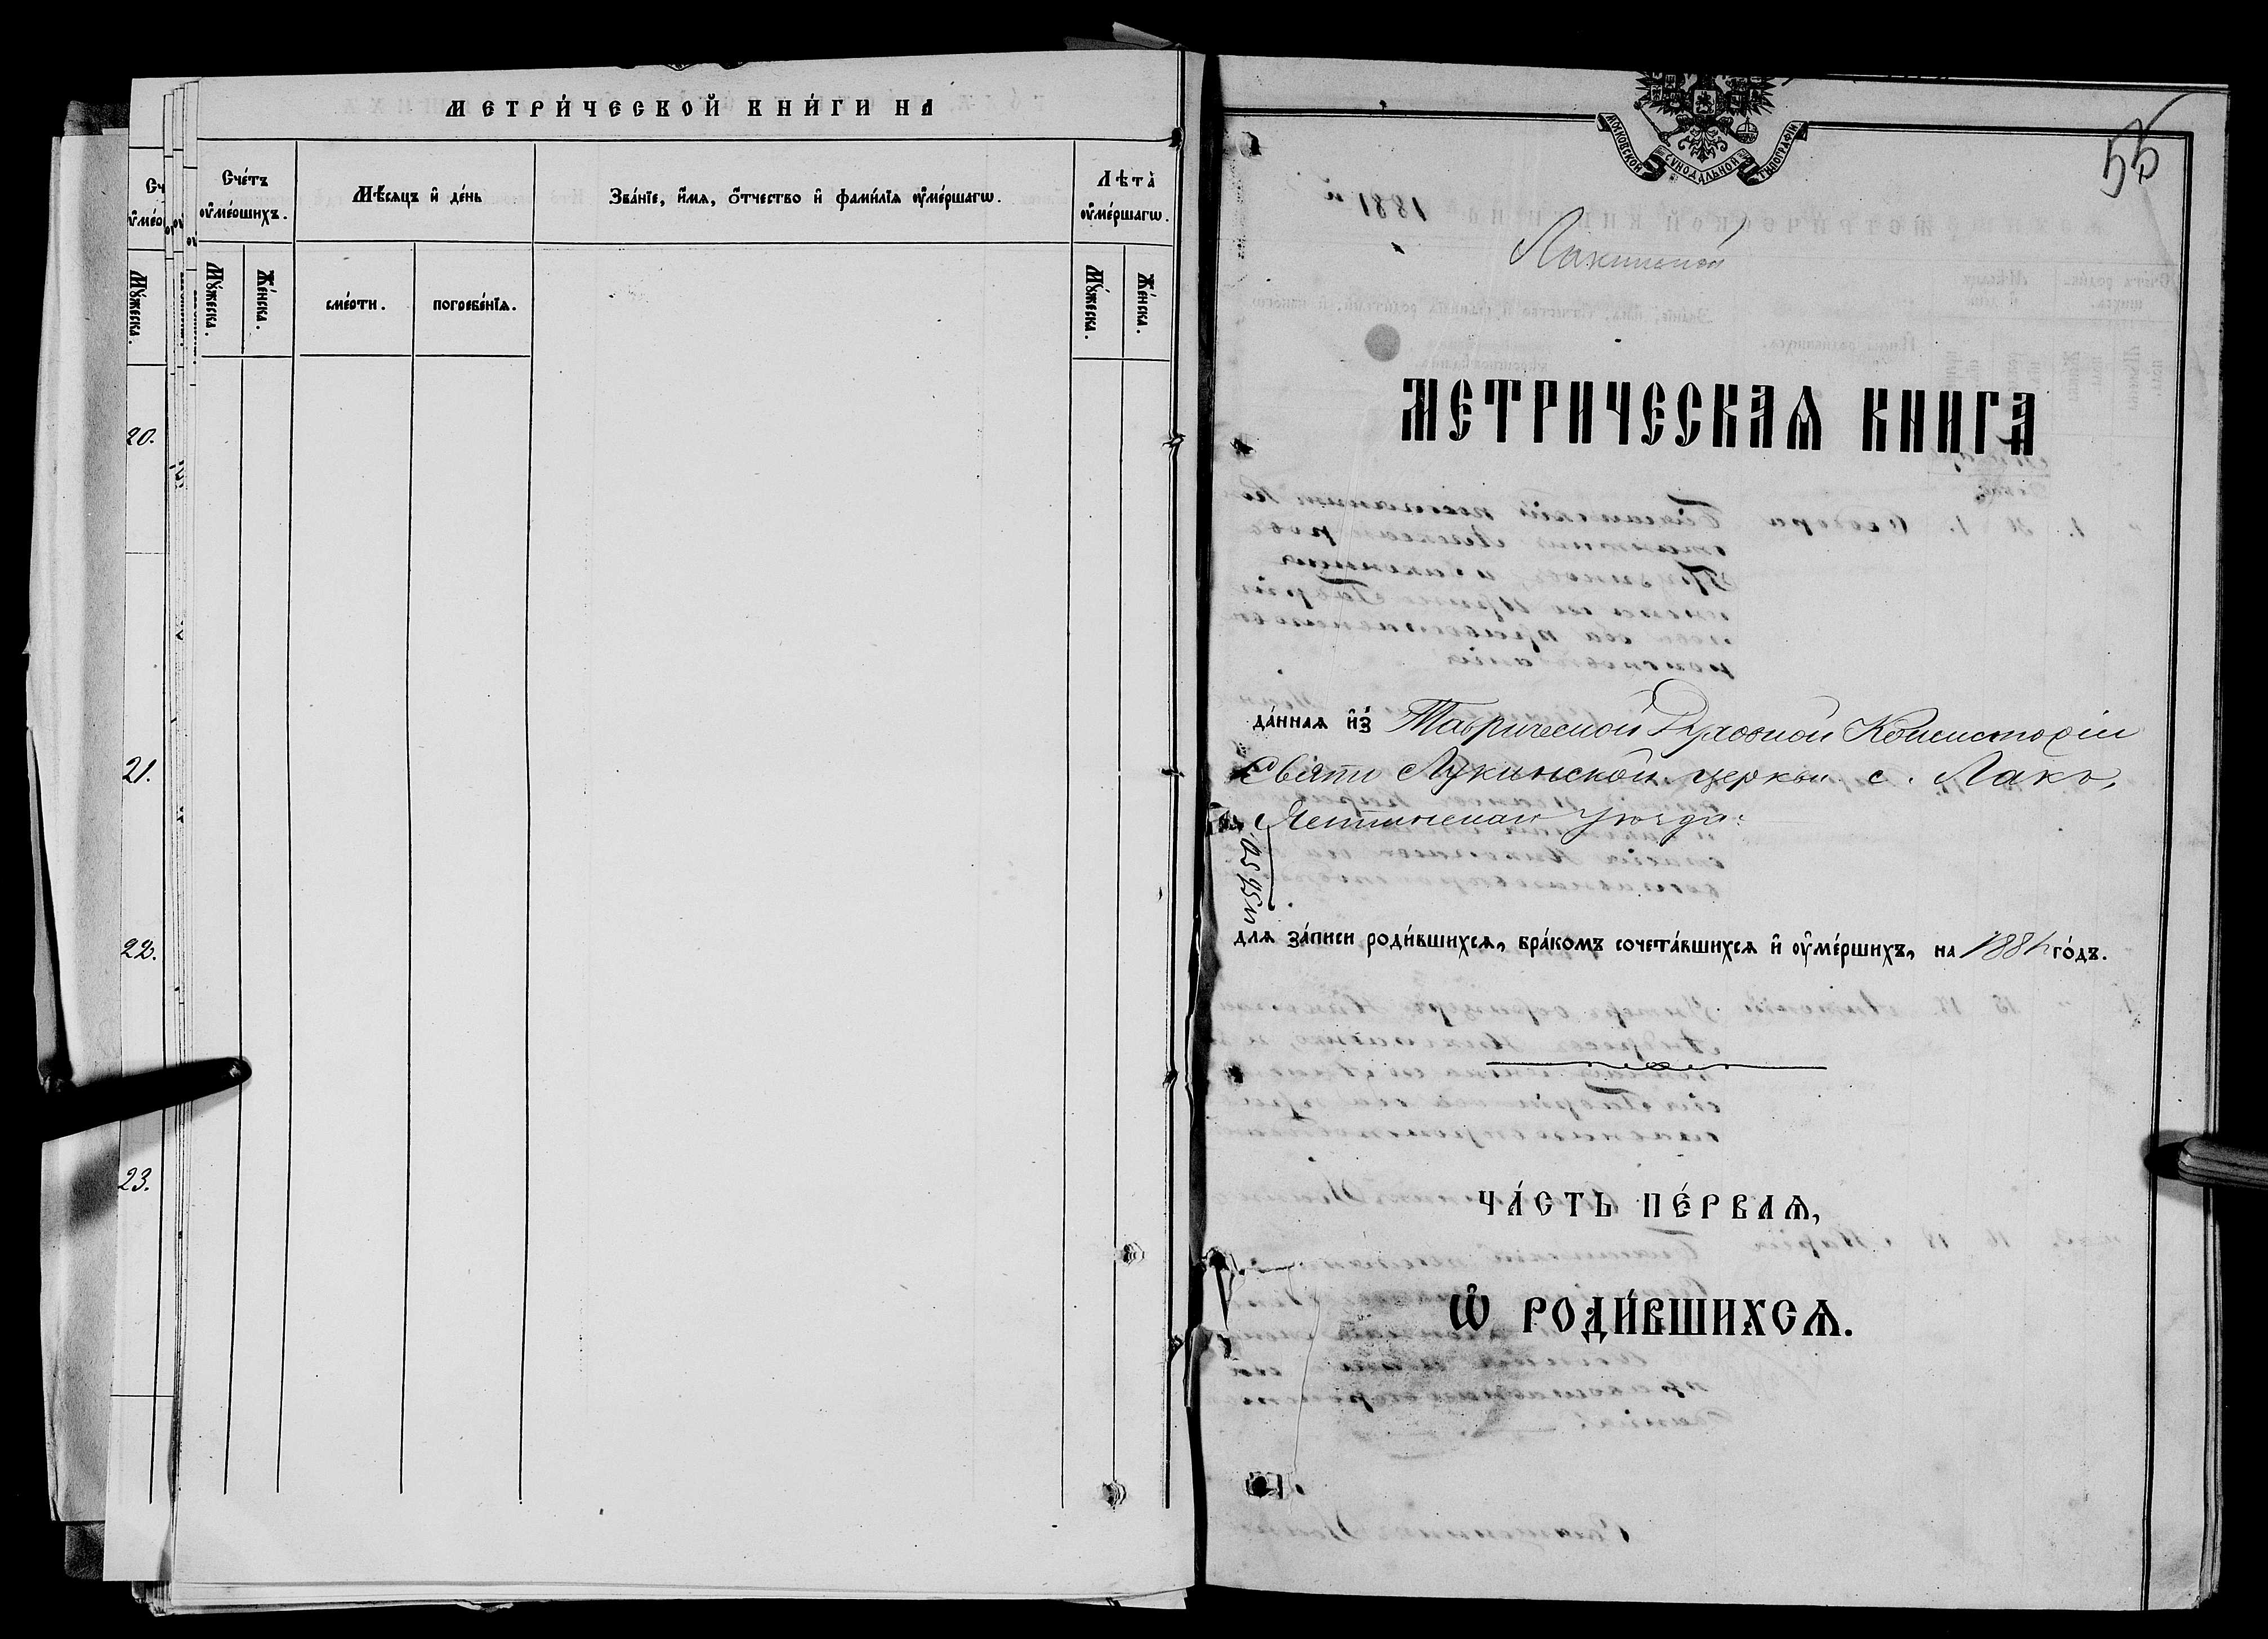 МЕТРИ́ЧЕСКОЙ КНИ́ГИ НА
Сче́тъ ᲂу҆ме́ршихъ.
Мѣ́сяцъ и҆ де́нь
Зва́нїе, и҆́мѧ, ѻ҆́тчество и҆ фами́лїѧ ᲂу҆ме́ршагѡ.
Лѣта̀ ᲂу҆ме́ршагѡ.
Мꙋ́жеска.
Же́нска.
сме́рти.
погребе́нїѧ.
Мꙋ́жеска.
Же́нска.
Мꙋ́жеска.
20.
21.
22.
23.
МОСКОВСКОЙ СѴНОДАЛЬНОЙ ТИПОГРАФІИ
55
Лакинской
МЕТРИЧЕСКАѦ КНИГА
да́ннаѧ и҆з̾ Таврической Духовной Консисторіи
Свято Лукинской церкви с. Лакъ,
Ялтинскаго уѣзда
длѧ за́писи роди́вшихсѧ, бра́комъ сочета́вшихсѧ и҆ ᲂу҆ме́ршихъ, на 1881 го́дъ.
ЧА́СТЬ ПЕ́РВАѦ,
Ѡ҆ РОДИ́ВШИХСѦ.